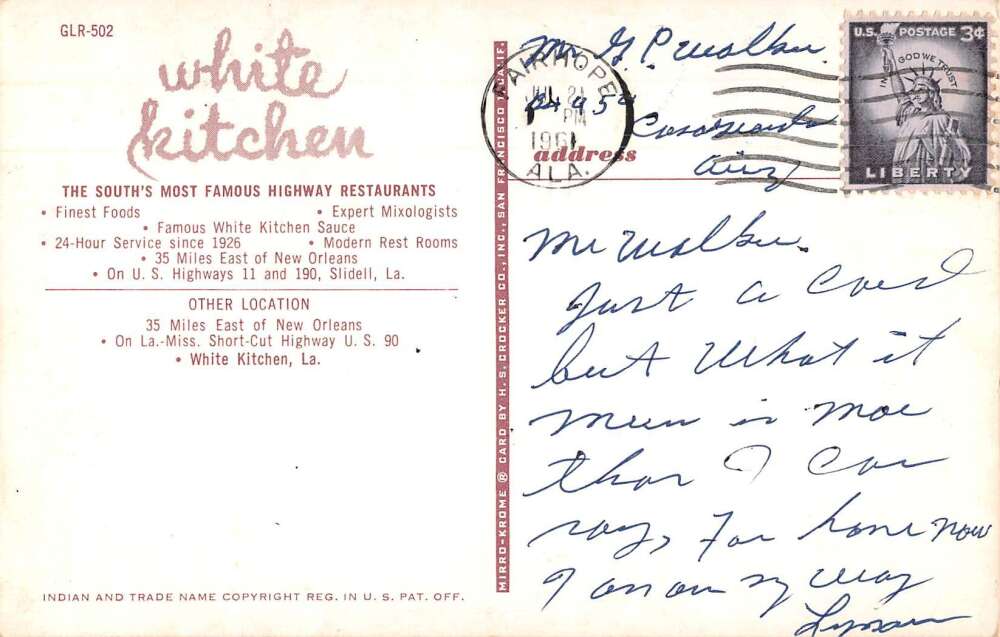 GLR-502
white
kitchen
THE SOUTH'S MOST FAMOUS HIGHWAY RESTAURANTS
• Finest Foods • Expert Mixologists
• Famous White Kitchen Sauce
• 24-Hour Service since 1926 • Modern Rest Rooms
• 35 Miles East of New Orleans
• On U. S. Highways 11 and 190, Slidell, La.
OTHER LOCATION
35 Miles East of New Orleans
• On La.-Miss. Short-Cut Highway U. S. 90
• White Kitchen, La.
INDIAN AND TRADE NAME COPYRIGHT REG. IN U. S. PAT. OFF.
MIRRO-KROME ® CARD BY H. S. CROCKER CO., INC., SAN FRANCISCO 1, CALIF.
Mr G. P. Walker
address
FAIRHOPE
JUL 21
PM
1961
ALA.
U.S. POSTAGE 3¢
IN GOD WE TRUST
LIBERTY
Mr Walker.
Just a card
but What it
meen is moe
than I can
say, For home now
I am on my way
Lyman